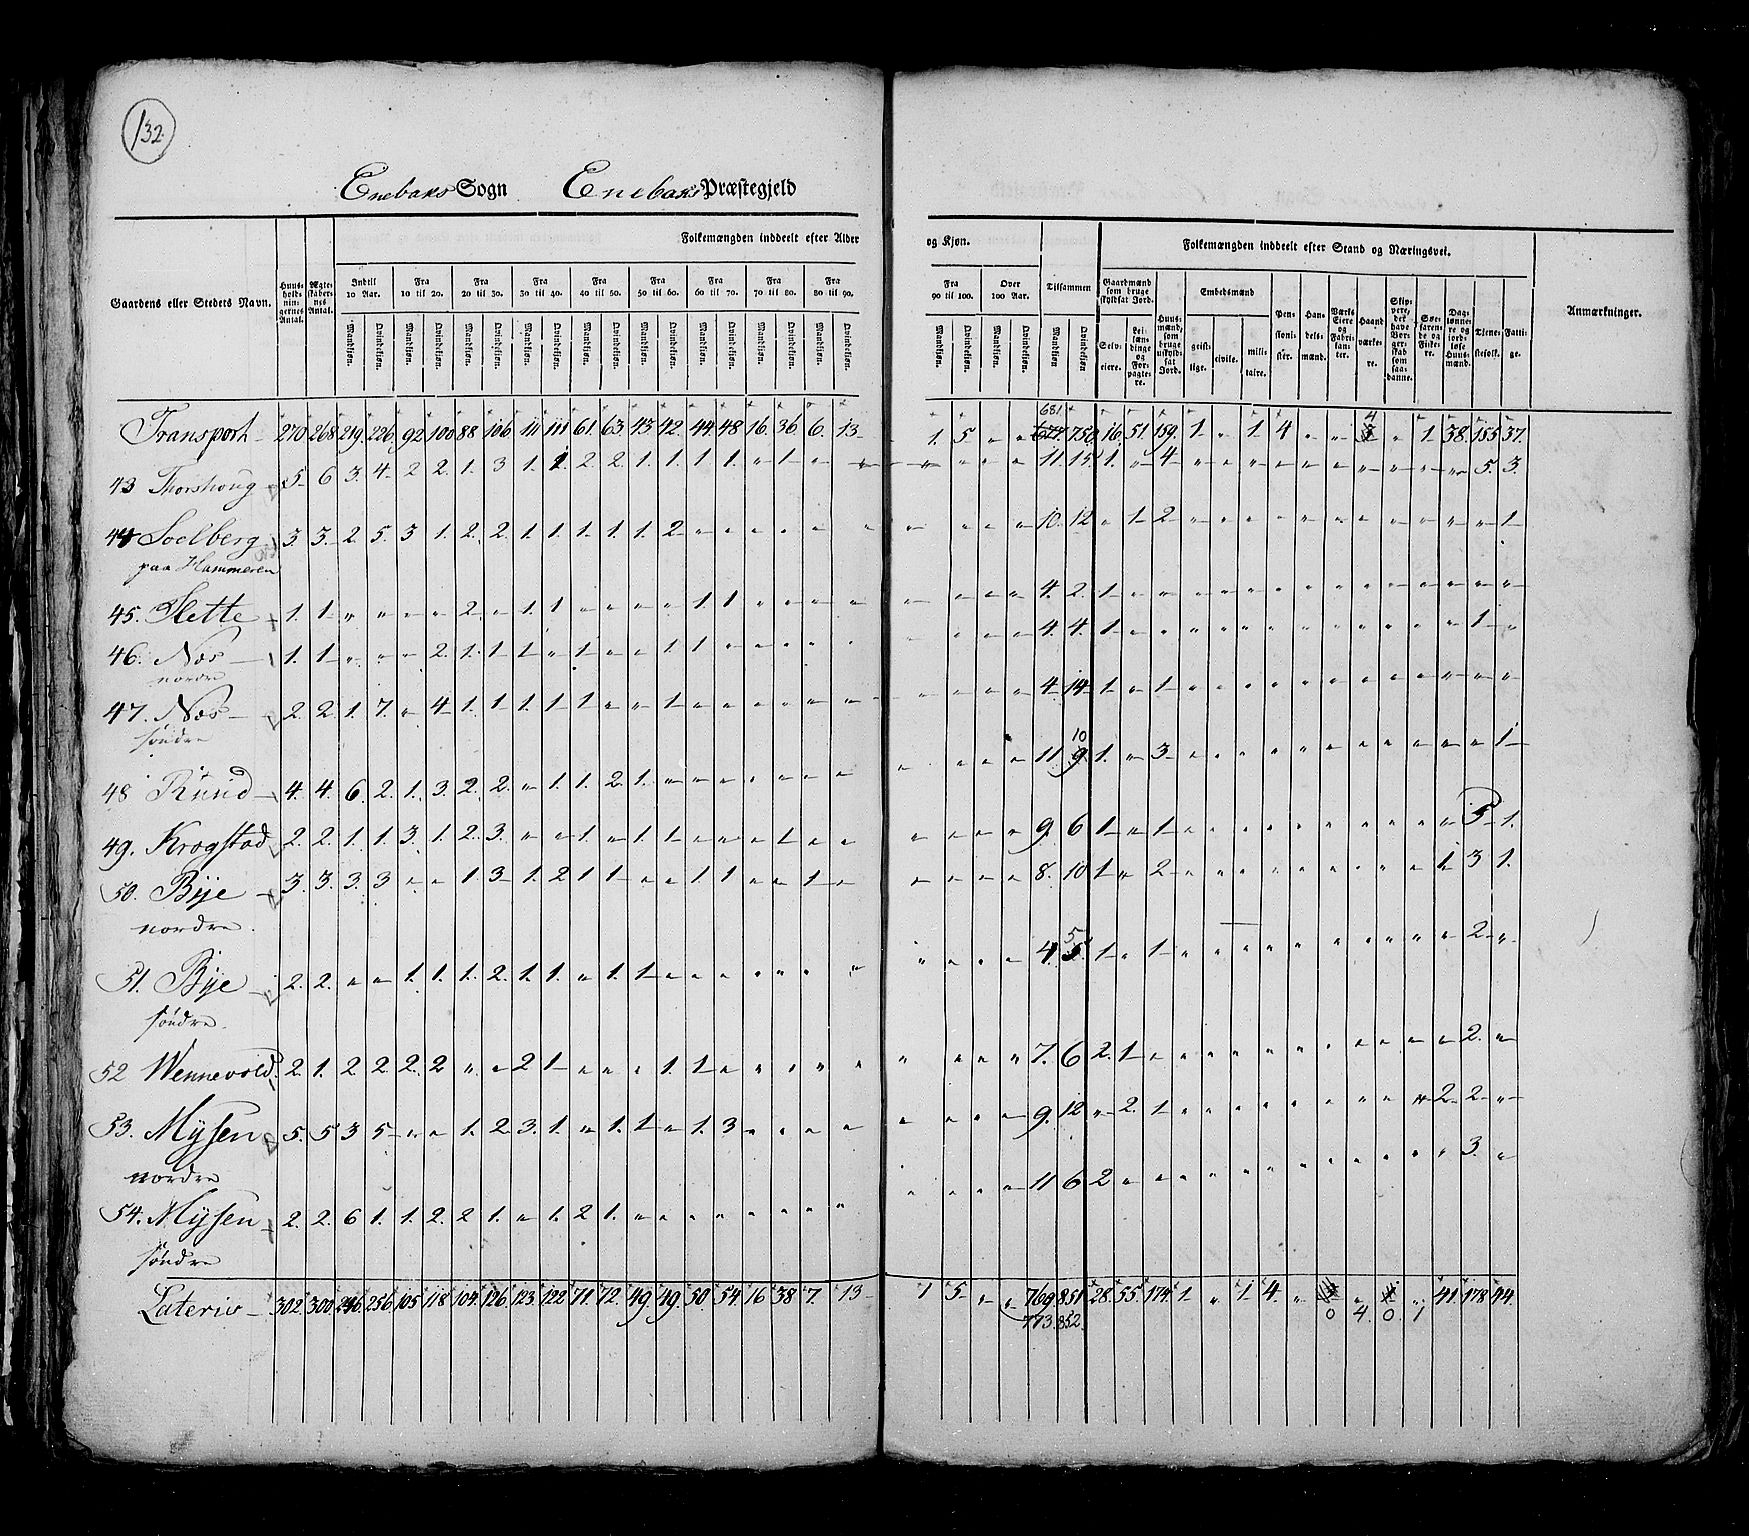 132.
Enebaks Sogn Enebaks Præstegjeld
Folkemængden inddeelt efter Alder og Kjøn. Folkemængden inddeelt efter Stand og Næringsvei.
Gaardens eller Stedets Navn. Huusholdningernes Antal. Ægteskabernes Antal. Indtil 10 Aar. Fra 10 til 20. Fra 20 til 30. Fra 30 til 40. Fra 40 til 50. Fra 50 til 60. Fra 60 til 70. Fra 70 til 80. Fra 80 til 90. Fra 90 til 100. Over 100 Aar. Tilsammen Gaardmænd som bruge skyldsat Jord. Huusmænd, som bruge uskyldsat Jord. Embedsmænd Pensionister. Handelsmænd. Værks Eiere og Fabrikanter. Haandværkere. Skippere, der have Borgerskab som saadanne. Søefarende og Fiskere. Dagslønnere og jordløse Huusmænd. Tienestefolk. Fattige. Anmærkninger.
Mandkjøn. Qvindekjøn. Mandkjøn. Qvindekjøn. Mandkjøn. Qvindekjøn. Mandkjøn. Qvindekjøn. Mandkjøn. Qvindekjøn. Mandkjøn. Qvindekjøn. Mandkjøn. Qvindekjøn. Mandkjøn. Qvindekjøn. Mandkjøn. Qvindekjøn. Mandkjøn. Qvindekjøn. Mandkjøn. Qvindekjøn. Mandkjøn Qvindekjøn Selveiere. Leilændinge og Forpagtere. geistlige. civile. militaire.
681.
Transport 270 268 219. 226. 92 100 88 106 111 111 61. 63. 43 42. 44. 48 16. 36. 6. 13 1. 5 „ „ 677. 750. 16. 51. 159. 1 „ 1. 4 „ „ 4 „ 1. 38. 155 37.
43 Thorshoug 5 6 3. 4. 2 2. 1. 3 1. 1. 2 2. 1. 1. 1 1. „ 1 „ „ „ „ „ „ 11. 15. 1. „ 4 „ „ „ „ „ „ „ „ „ „ 5. 3.
44 Soelberg 3 3. 2. 5. 3 1. 2. 2. 1. 1. 1. 1. 1. 2 „ „ „ „ „ „ „ „ „ „ 10. 12 „ 1 2 „ „ „ „ „ „ „ „ „ „ „ 1
paa Hammeren
45. Slette 1. 1 „ „ „ „ 2 „ 1. 1 „ „ „ „ 1. 1 „ „ „ „ „ „ „ „ 4. 2. 1 „ „ „ „ „ „ „ „ „ „ „ „ „ „
46. Næs 1. 1 „ „ „ 2. 1. 1 1. „ 1 „ „ 1 1 „ „ „ „ „ „ „ „ „ 4. 4. 1 „ „ „ „ „ „ „ „ „ „ „ „ 1 „
nordre
47. Næs 2. 2. 1. 7. „ 4 1. 1. 1. 1. 1 „ „ 1 „ „ „ „ „ „ „ „ „ „ 4. 14 1 „ 1 „ „ „ „ „ „ „ „ „ „ „ „
søndre
10
48 Ruud 4. 4. 6. 2. 1. 3. 2. 2. „ 1. 1. 2. 1. „ „ „ „ „ „ „ „ „ „ „ 11. 9. 1. „ 3 „ „ „ „ „ „ „ „ „ „ „ 1
49. Krogstad 2. 2. 1. 1. 3. 1. 2. 3. „ „ 1 „ 1. 1 „ „ „ 1 „ „ „ „ „ „ 9. 6. 1 „ 1 „ „ „ „ „ „ „ „ „ „ 5 1.
50. Bye 3. 3. 3. 3 „ „ 1. 3 1. 2 1. 1 „ „ 1. 1 „ „ 1 „ „ „ „ „ 8. 10 1 „ 2 „ „ „ „ „ „ „ „ „ 1 3 1.
nordre.
5
51. Bye 2. 2. „ „ 1. 1. 1. 2. 1. 1 „ 1. 1 „ „ „ „ „ „ „ „ „ „ 4. 1 „ 1 „ „ „ „ „ „ „ „ „ „ 2 „
søndre.
52 Wennevold. 2. 1. 2 2. 2. 2 „ „ 2 1 „ „ „ 1. 1 „ „ „ „ „ „ „ „ „ 7. 6 2. 1 „ „ „ „ „ „ „ „ „ „ „ 2. „
53. Mysen 5. 5 3 5 „ „ 1. 2. 3. 1. „ 1. 1 „ 1. 3 „ „ „ „ „ „ „ „ 9. 12 „ 2. 1 „ „ „ „ „ „ „ „ „ 2. 2. „
nordre
54. Mysen 2. 2. 6 1. 1. 2. 2 1. „ 1. 2 1. „ „ „ „ „ „ „ „ „ „ „ „ 11 6 2 „ „ „ „ „ „ „ „ „ „ „ „ 3. „
søndre
Lateris 302. 300. 246. 256. 105 118 104. 126. 123. 122 71. 72. 49. 49. 50 54. 16 38 7. 13 1 5 „ „ 769. 851. 28. 55. 174. 1 „ 1 4. „ „ „ 41. 178 44.
773. 852. 0 4. 0. 1